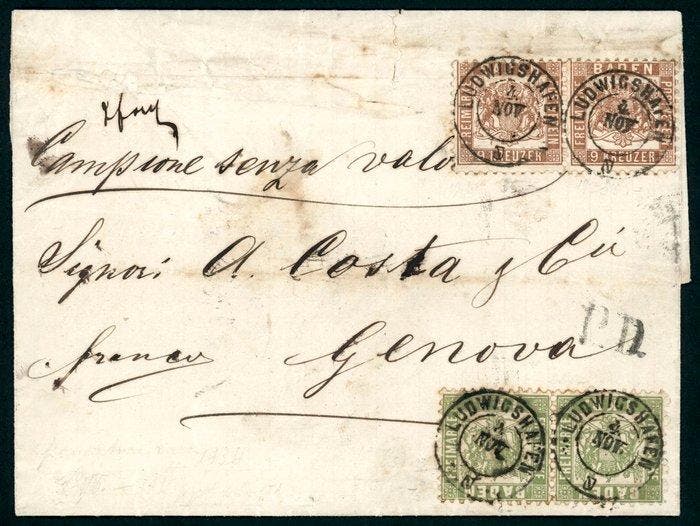 BADEN
FREIMARKE
9 KREUZER
9 KREUZER
LUDWIGSHAFEN
4
NOV
LUDWIGSHAFEN
4
NOV
Campione senza valo
Signori A. Costa y Cia
P.D.
franco Genova
LUDWIGSHAFEN
4
NOV
LUDWIGSHAFEN
4
NOV
FREIMARKE
BADEN
BADEN